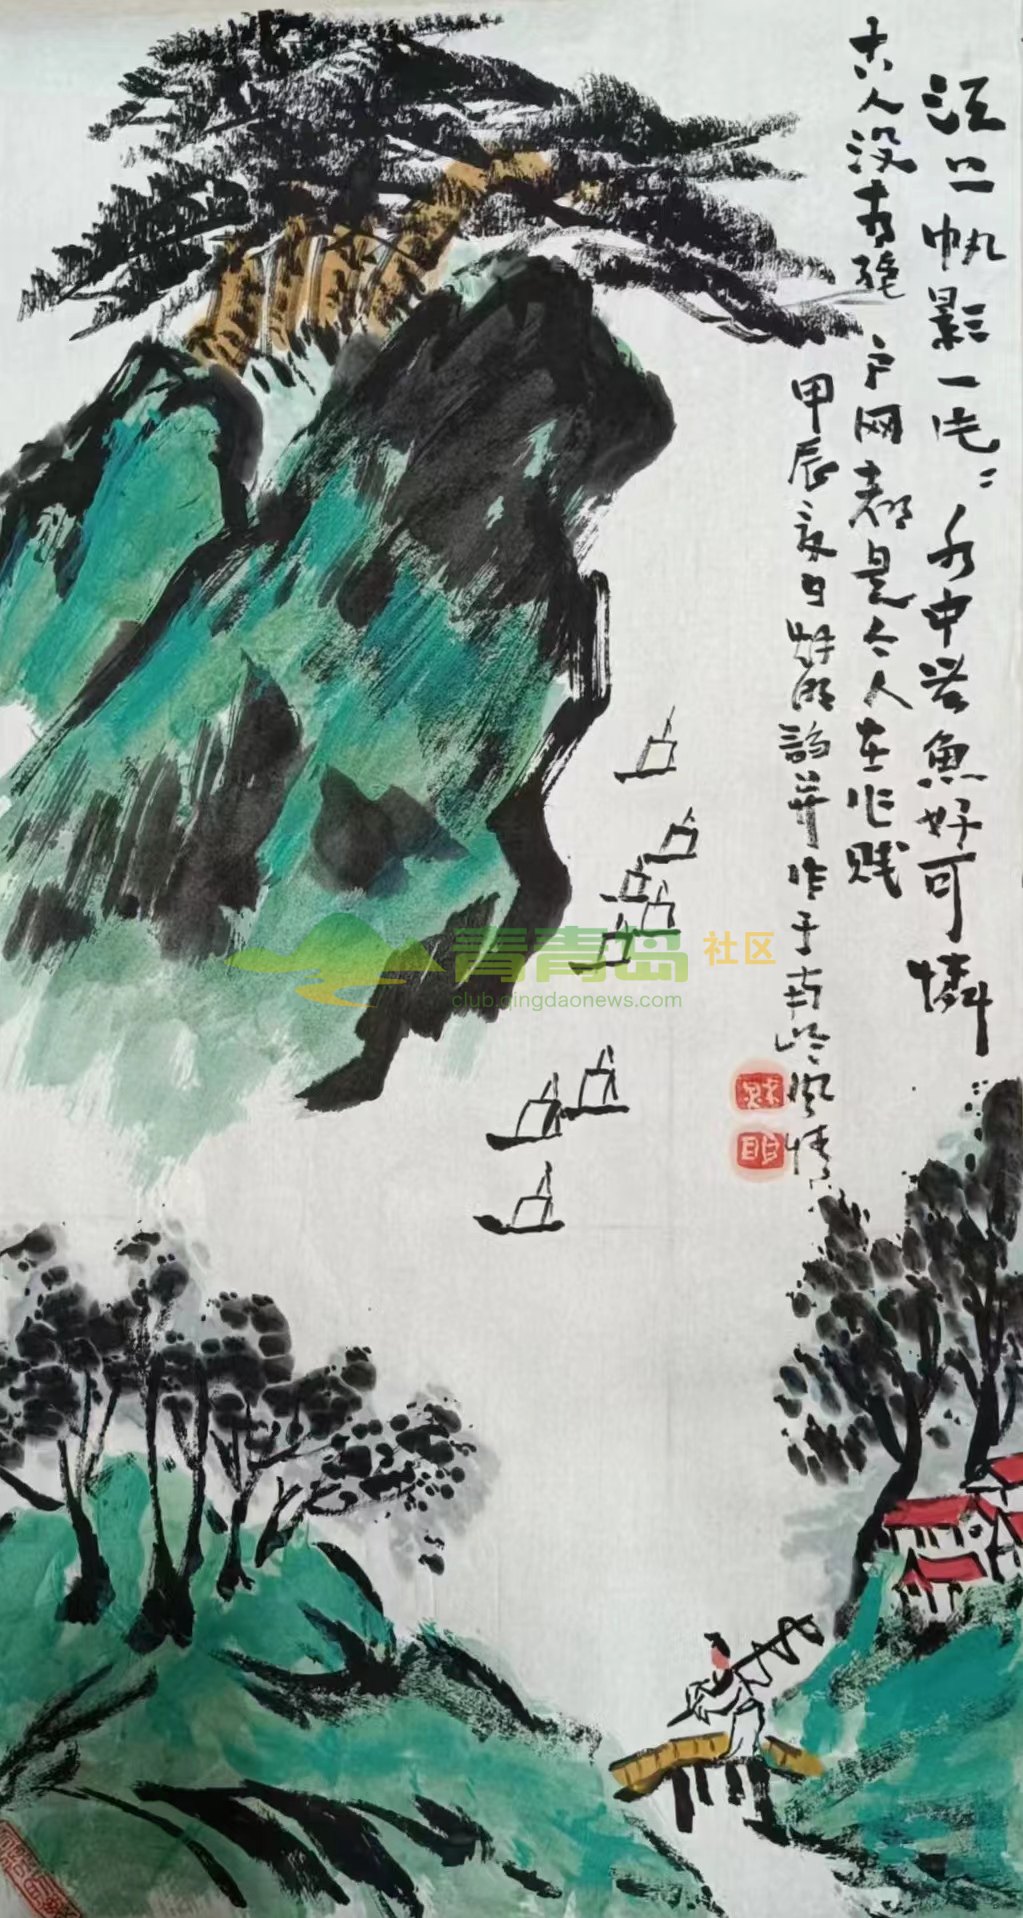 江上帆影一片々水中魚好可憐
古人没有绝户网都是今人在作贱
甲辰夏日明詩并作于南岭风情
青青岛社区
club.qingdaonews.com